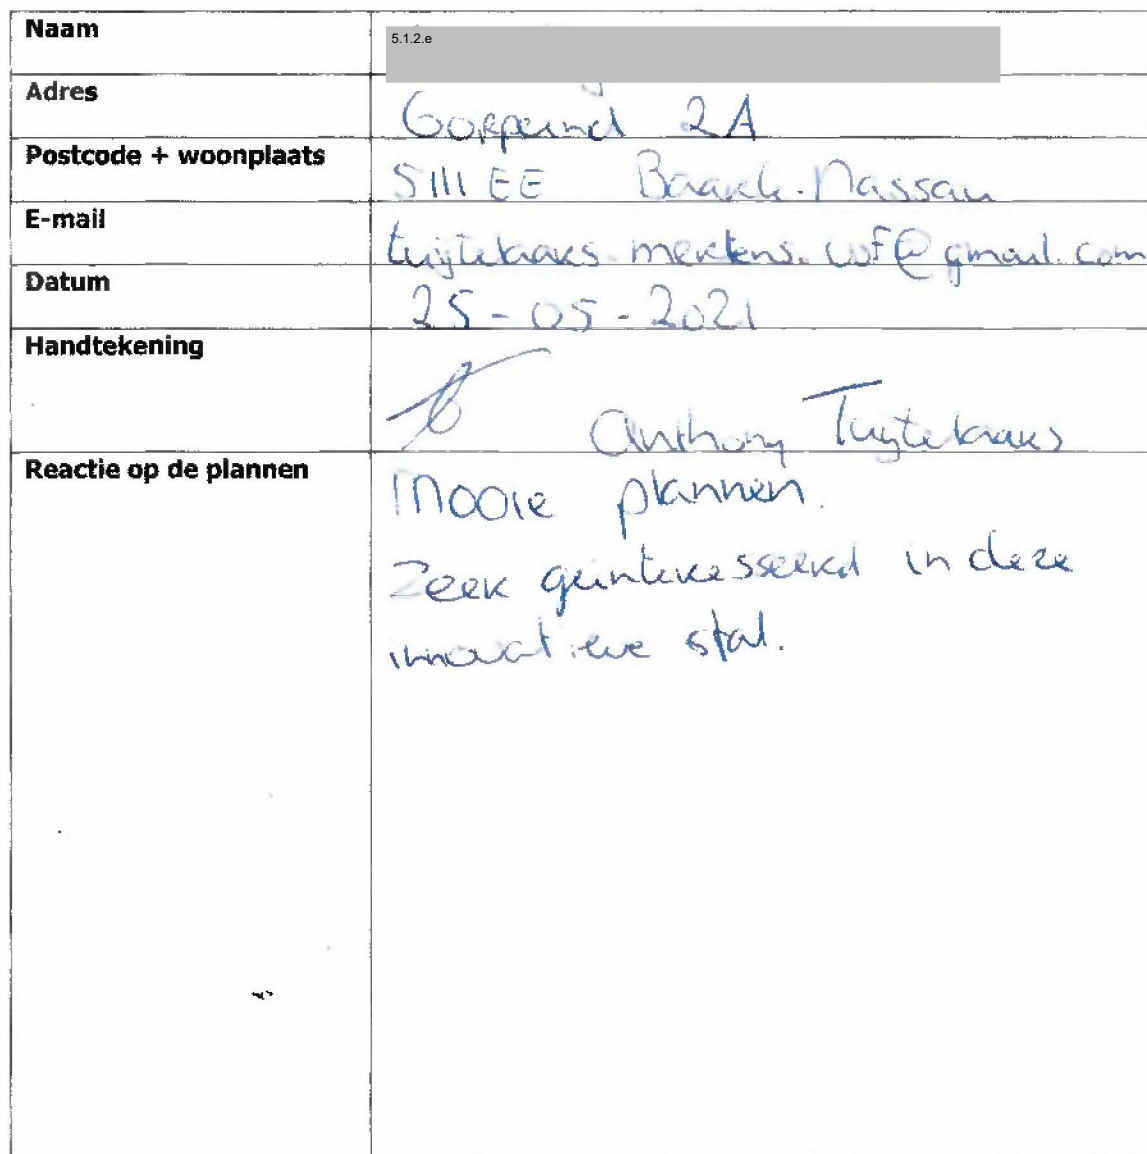 Naam
5.1.2.e
Adres Gorpeind 2A
Postcode + woonplaats 5111 EE Baarle-Nassau
E-mail tuijtelaars.mertens.vof@gmail.com
Datum 25-05-2021
Handtekening
Anthony Tuijtelaars
Reactie op de plannen Mooie plannen.
Zeer geinteresseerd in deze
innovatieve stal.